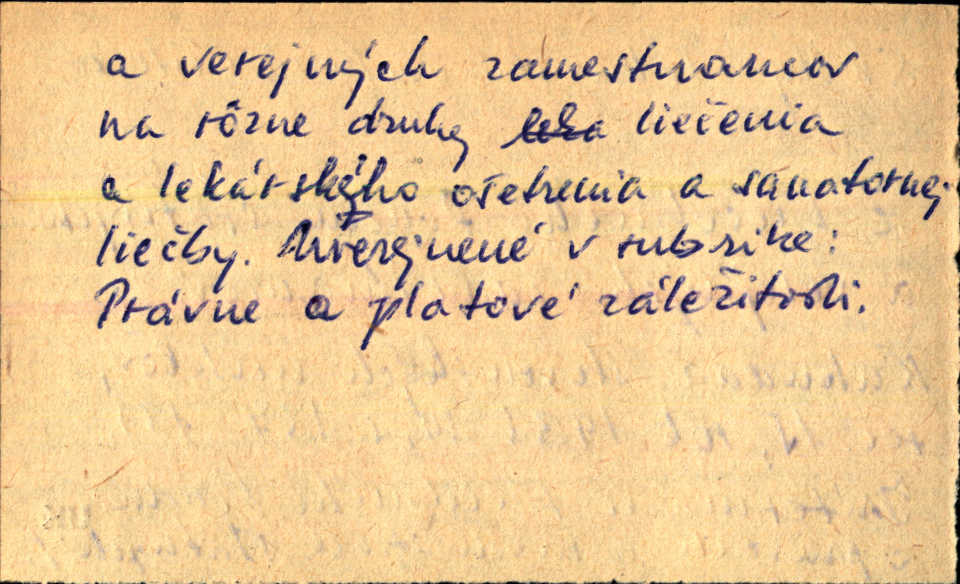 a verejných zamestnancov
na rôzne druhy liečenia
a lekárskeho ošetrenia a sanatornej
liečby. Uverejnené v rubrike:
Právne a platové záležitosti.